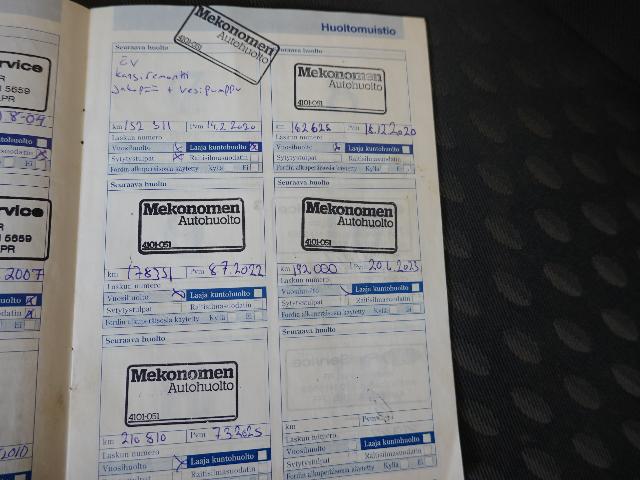 Huoltomuistio
Mekonomen
Autohuolto
4101-051
Seuraava huolto
km 152 311 Pvm 14.2.2020
Laskun numero
Vuosihuolto Laaja kuntohuolto
Sytytystulpat Raitisilmasuodatin
Fordin alkuperäisosia käytetty Kyllä Ei
Seuraava huolto
Mekonomen
Autohuolto
4101-051
km 162625 Pvm 18.12.2020
Laskun numero
Vuosihuolto Laaja kuntohuolto
Sytytystulpat Raitisilmasuodatin
Fordin alkuperäisosia käytetty Kyllä Ei
Seuraava huolto
Mekonomen
Autohuolto
4101-051
km 178351 Pvm 8.7.2022
Laskun numero
Vuosihuolto Laaja kuntohuolto
Sytytystulpat Raitisilmasuodatin
Fordin alkuperäisosia käytetty Kyllä Ei
Seuraava huolto
Mekonomen
Autohuolto
4101-051
km 192000 Pvm 20.6.2023
Laskun numero
Vuosihuolto Laaja kuntohuolto
Sytytystulpat Raitisilmasuodatin
Fordin alkuperäisosia käytetty Kyllä Ei
Seuraava huolto
Mekonomen
Autohuolto
4101-051
km 210 810 Pvm 7.3.2025
Laskun numero
Vuosihuolto Laaja kuntohuolto
Sytytystulpat Raitisilmasuodatin
Seuraava huolto
km Pvm
Laskun numero
Vuosihuolto Laaja kuntohuolto
Sytytystulpat Raitisilmasuodatin
Fordin alkuperäisosia käytetty Kyllä Ei
5659
2007
2010